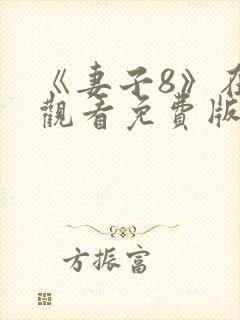 《妻子8》在
觀看免費版
方振富